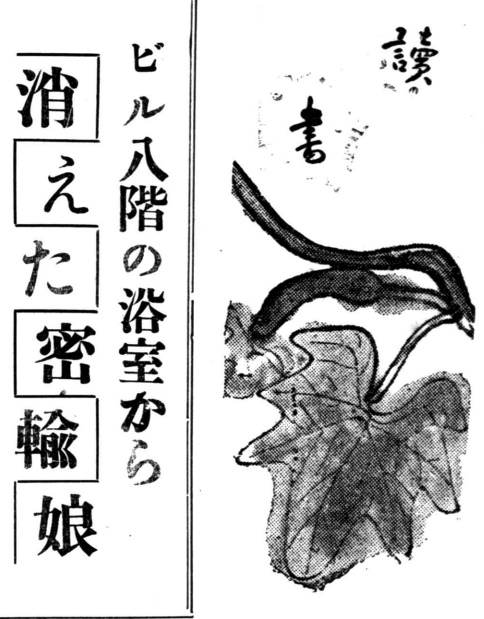 讀書
ビル八階の浴室から
消えた密輸娘